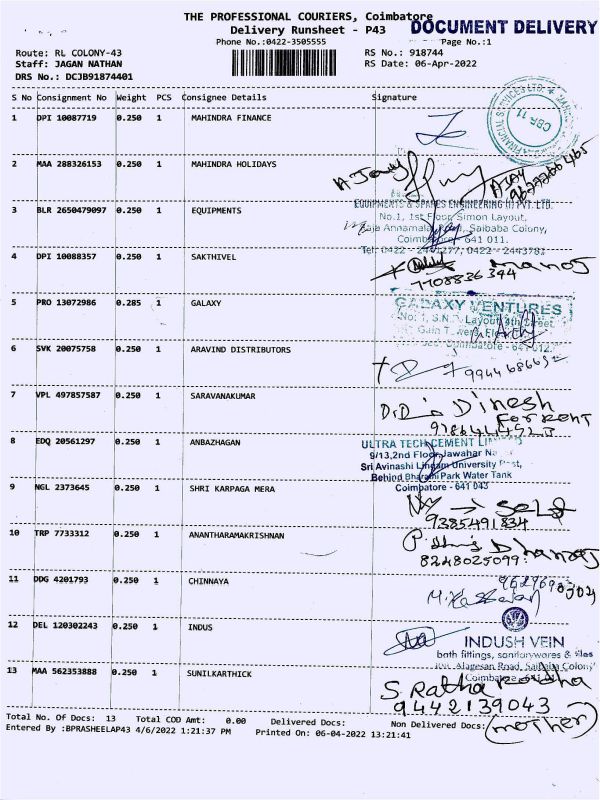 THE PROFESSIONAL COURIERS, Coimbatore
DOCUMENT DELIVERY
Delivery Runsheet - P43
Phone No.:0422-3505555
Page No.:1
Route: RL COLONY-43
RS No.: 918744
Staff: JAGAN NATHAN
RS Date: 06-Apr-2022
DRS No.: DCJB91874401
S No Consignment No Weight PCS Consignee Details Signature
1 DPI 10087719 0.250 1 MAHINDRA FINANCE
FINANCIAL SERVICES LTD.
CBA 11
2 MAA 288326153 0.250 1 MAHINDRA HOLIDAYS
3 BLR 2650479097 0.250 1 EQUIPMENTS
EQUIPMENTS & SPARES ENGINEERING (I) PVT. LTD.
No.1, 1st Floor, Simon Layout,
Raja Annamalai Road, Saibaba Colony,
Coimbatore - 641 011.
4 DPI 10088357 0.250 1 SAKTHIVEL
manoj
7708836344
5 PRO 13072986 0.285 1 GALAXY
GALAXY VENTURES
No: 1, S.N.D. Layout, 4th Street,
Coimbatore - 641 012.
6 SVK 20075758 0.250 1 ARAVIND DISTRIBUTORS
7 VPL 497857587 0.250 1 SARAVANAKUMAR
Dinesh
8 EDQ 20561297 0.250 1 ANBAZHAGAN
ULTRA TECH CEMENT
9/13,2nd Floor, Jawahar
Sri Avinashi Lingam University Post,
Behind Bharathi Park Water Tank
Coimbatore - 641 043
9 NGL 2373645 0.250 1 SHRI KARPAGA MERA
Self
9385491834
10 TRP 7733312 0.250 1 ANANTHARAMAKRISHNAN
Dhanoj
8248025099
11 DDG 4201793 0.250 1 CHINNAYA
12 DEL 120302243 0.250 1 INDUS
INDUSH VEIN
bath fittings, sanitarywares & tiles
Alagesan Road, Saibaba Colony
13 MAA 562353888 0.250 1 SUNILKARTHICK
S Ratha
9442139043
(mother)
Total No. Of Docs: 13 Total COD Amt: 0.00 Delivered Docs: Non Delivered Docs:
Entered By :BPRASHEELAP43 4/6/2022 1:21:37 PM Printed On: 06-04-2022 13:21:41